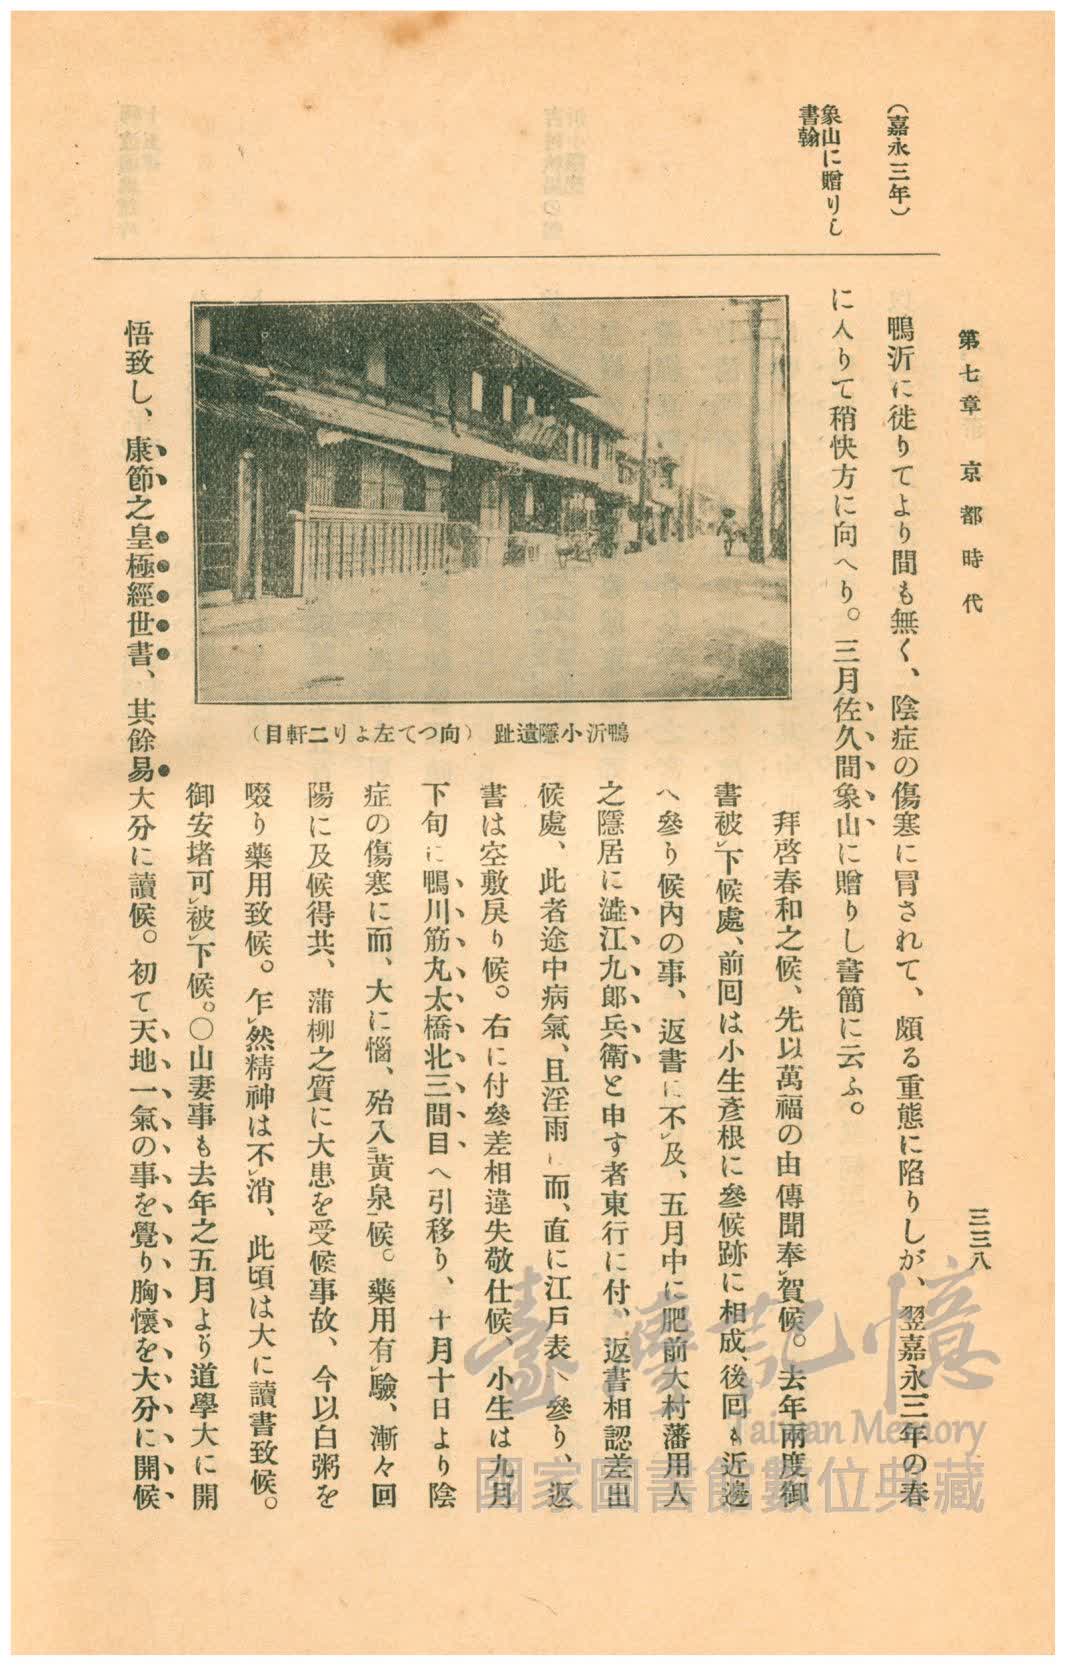 第七章 京都時代
三三八
(嘉永三年)
象山に贈りし
書翰
鴨沂に徙りてより間も無く、陰症の傷寒に冒されて、頗る重態に陷りしが、翌嘉永三年の春
に入りて稍快方に向へり。三月佐久間象山に贈りし書簡に云ふ。
拜啓春和之候、先以萬福の由傳聞奉レ賀候。去年兩度御
書被レ下候處、前回は小生彥根に參候跡に相成、後回も近邊
へ參り候內の事、返書に不レ及、五月中に肥前大村藩用人
之隱居に澁江九郞兵衛と申す者東行に付、返書相認差出
候處、此者途中病氣、且淫雨に而、直に江戶表へ參り、返
書は空敷戾り候。右に付參差相違失敬仕候、小生は九月
下旬に鴨川筋丸太橋北三間目へ引移り、十月十日より陰
症の傷寒に而、大に惱、殆入二黃泉一候。藥用有レ驗、漸々回
陽に及候得共、蒲柳之質に大患を受候事故、今以白粥を
啜り藥用致候。乍レ然精神は不レ消、此頃は大に讀書致候。
御安堵可レ被レ下候。〇山妻事も去年之五月より道學大に開
悟致し、康節之皇極經世書、其餘易大分に讀候。初て天地一氣の事を覺り胸懷を大分に開候
鴨沂小隱遺趾 (向つて左より二軒目)
臺灣記憶
Taiwan Memory
國家圖書館數位典藏